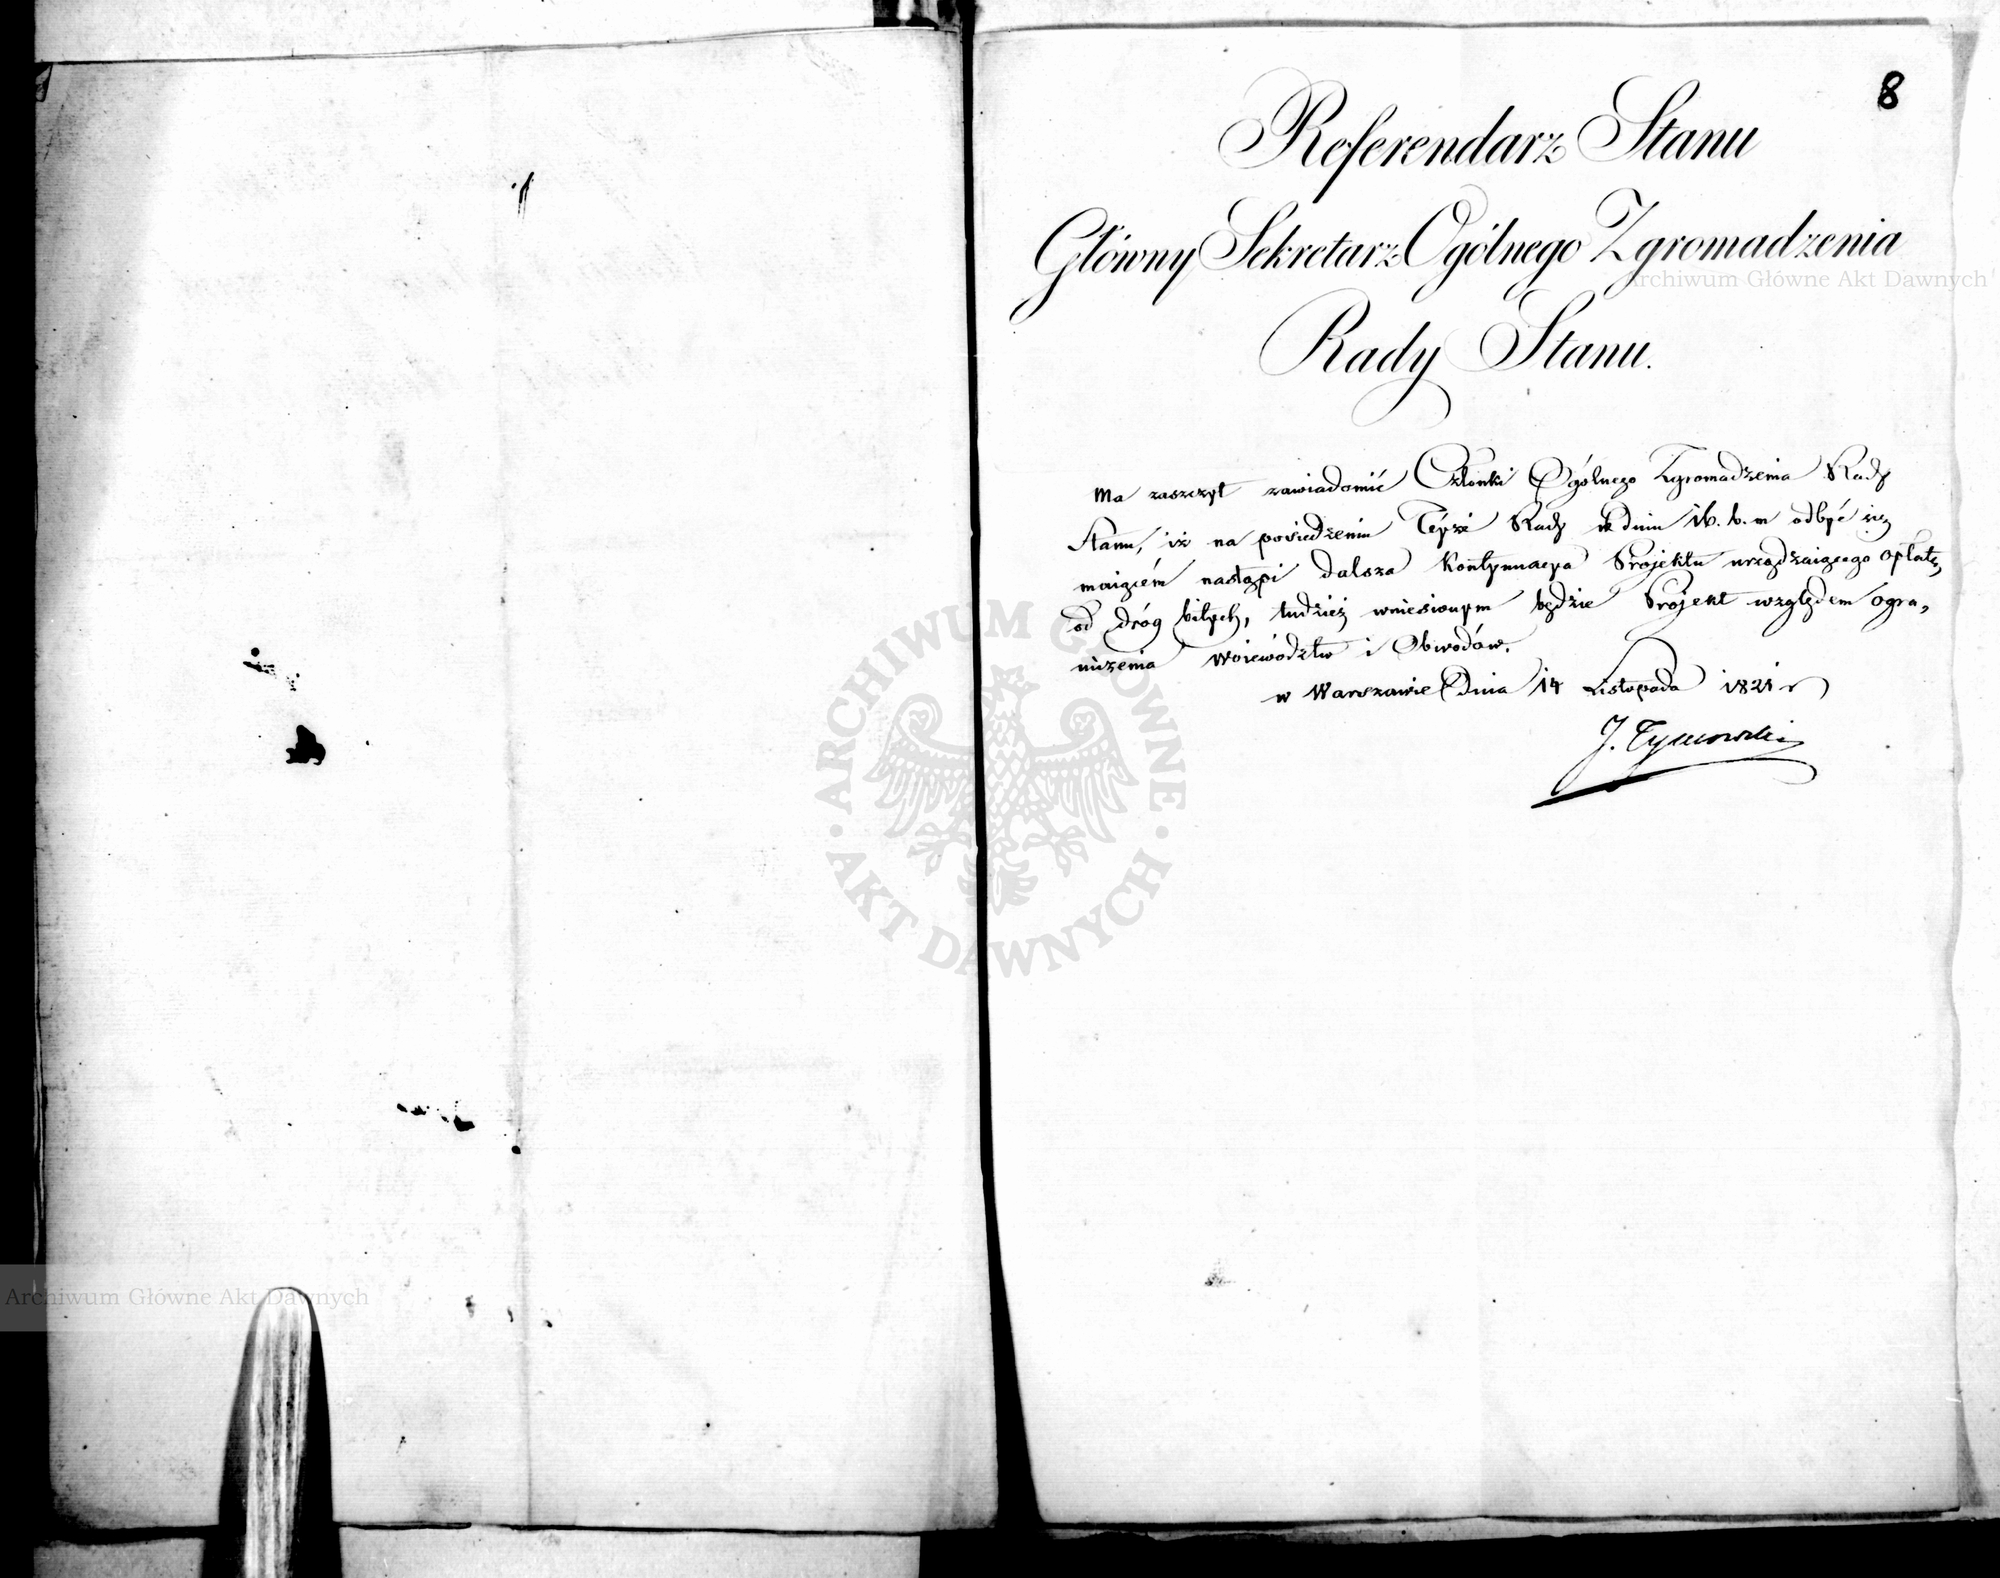 8
Referendarz Stanu
Główny Sekretarz Ogólnego Zgromadzenia
Rady Stanu.
Ma zaszczyt zawiadomić Członki Ogólnego Zgromadzenia Rady
Stanu, iż na posiedzeniu Teyże Rady w dniu 16. b. m odbyć się
maiącém nastąpi dalsza Kontynuacya Projektu urządzaiącego opłatę,
od dróg bitych, tudzież wniesionym będzie Projekt względem ogra,
niczenia Woiewództw i Obwodów.
w Warszawie Dnia 14 Listopada 1821 r
J. Tymowski
Archiwum Główne Akt Dawnych
ARCHIWUM GŁÓWNE
AKT DAWNYCH
Archiwum Główne Akt Dawnych